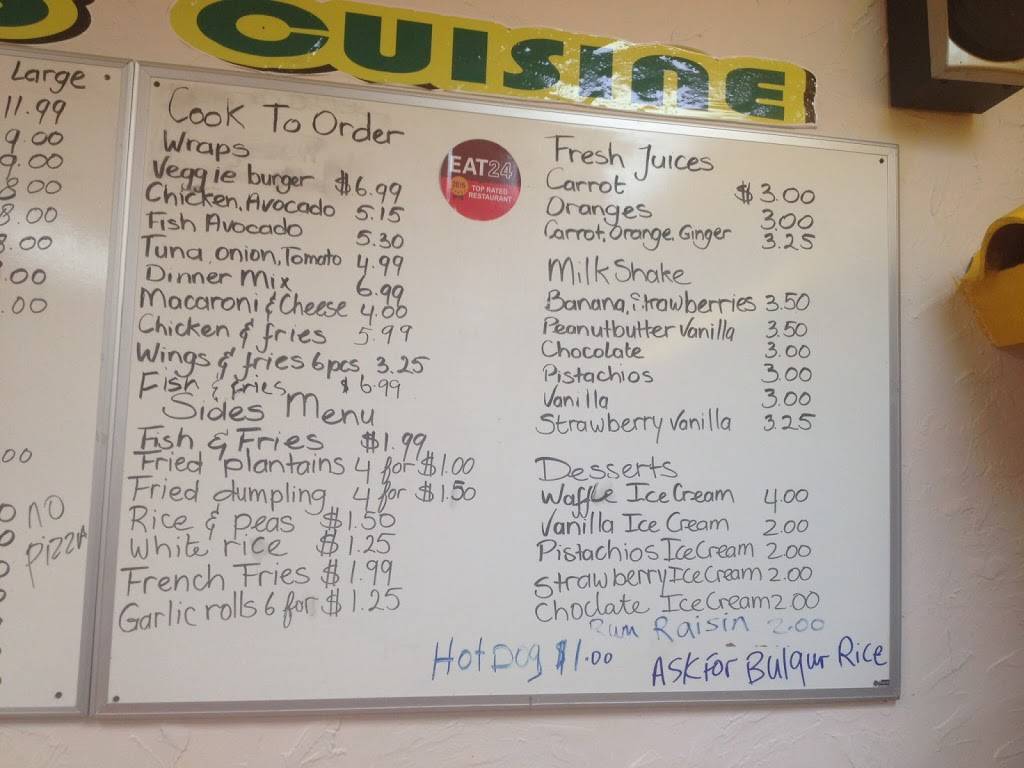 CUISINE
Large
11.99
9.00
9.00
8.00
8.00
8.00
.00
.00
.00
NO
PIZZA
Cook To Order
Wraps
Veggie burger $6.99
Chicken, Avocado 5.15
Fish Avocado 5.30
Tuna, onion, Tomato 4.99
Dinner Mix 6.99
Macaroni & Cheese 4.00
Chicken & fries 5.99
Wings & fries 6pcs 3.25
Fish & fries $6.99
Sides Menu
Fish & Fries $1.99
Fried plantains 4 for $1.00
Fried dumpling 4 for $1.50
Rice & peas $1.50
White rice $1.25
French Fries $1.99
Garlic rolls 6 for $1.25
EAT24
TOP RATED
RESTAURANT
Fresh Juices
Carrot $3.00
Oranges 3.00
Carrot, Orange, Ginger 3.25
MilkShake
Banana, Strawberries 3.50
Peanutbutter Vanilla 3.50
Chocolate 3.00
Pistachios 3.00
Vanilla 3.00
Strawberry Vanilla 3.25
Desserts
Waffle Ice Cream 4.00
Vanilla Ice Cream 2.00
Pistachios Ice Cream 2.00
Strawberry Ice Cream 2.00
Choclate Ice Cream 2.00
Rum Raisin 2.00
Hot Dog $1.00
ASK FOR Bulgur Rice